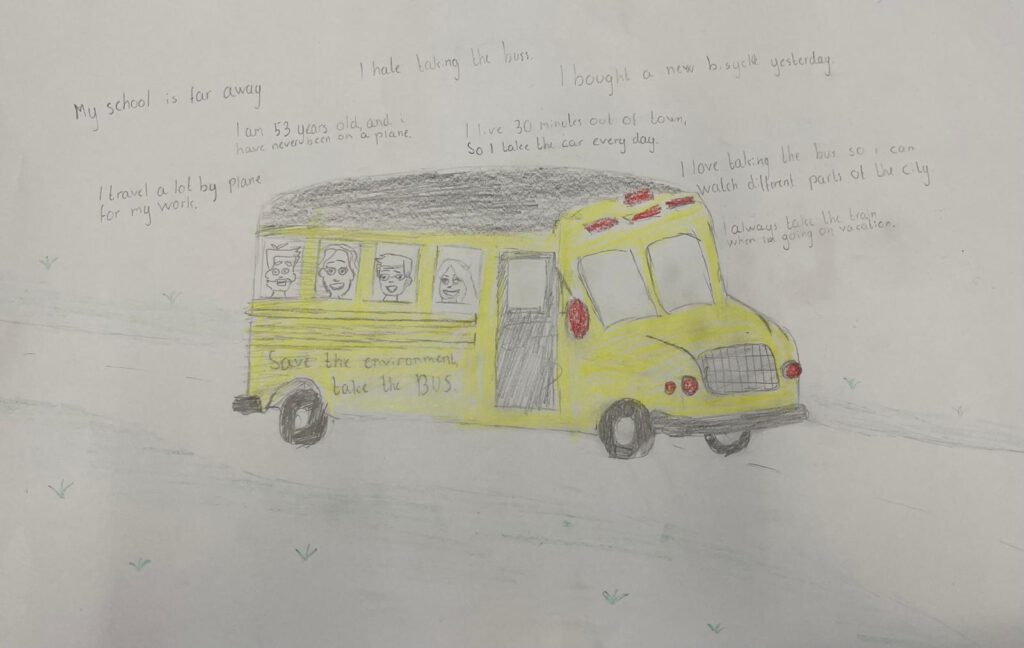 I hate taking the buss.
I bought a new bisycle yesterday.
My school is far away
I am 53 years old, and i
have never been on a plane.
I live 30 minutes out of town,
So I take the car every day.
I love taking the bus so i can
watch different parts of the city
I travel a lot by plane
for my work.
I always take the train
when im going on vacation.
Save the environment,
take the BUS.